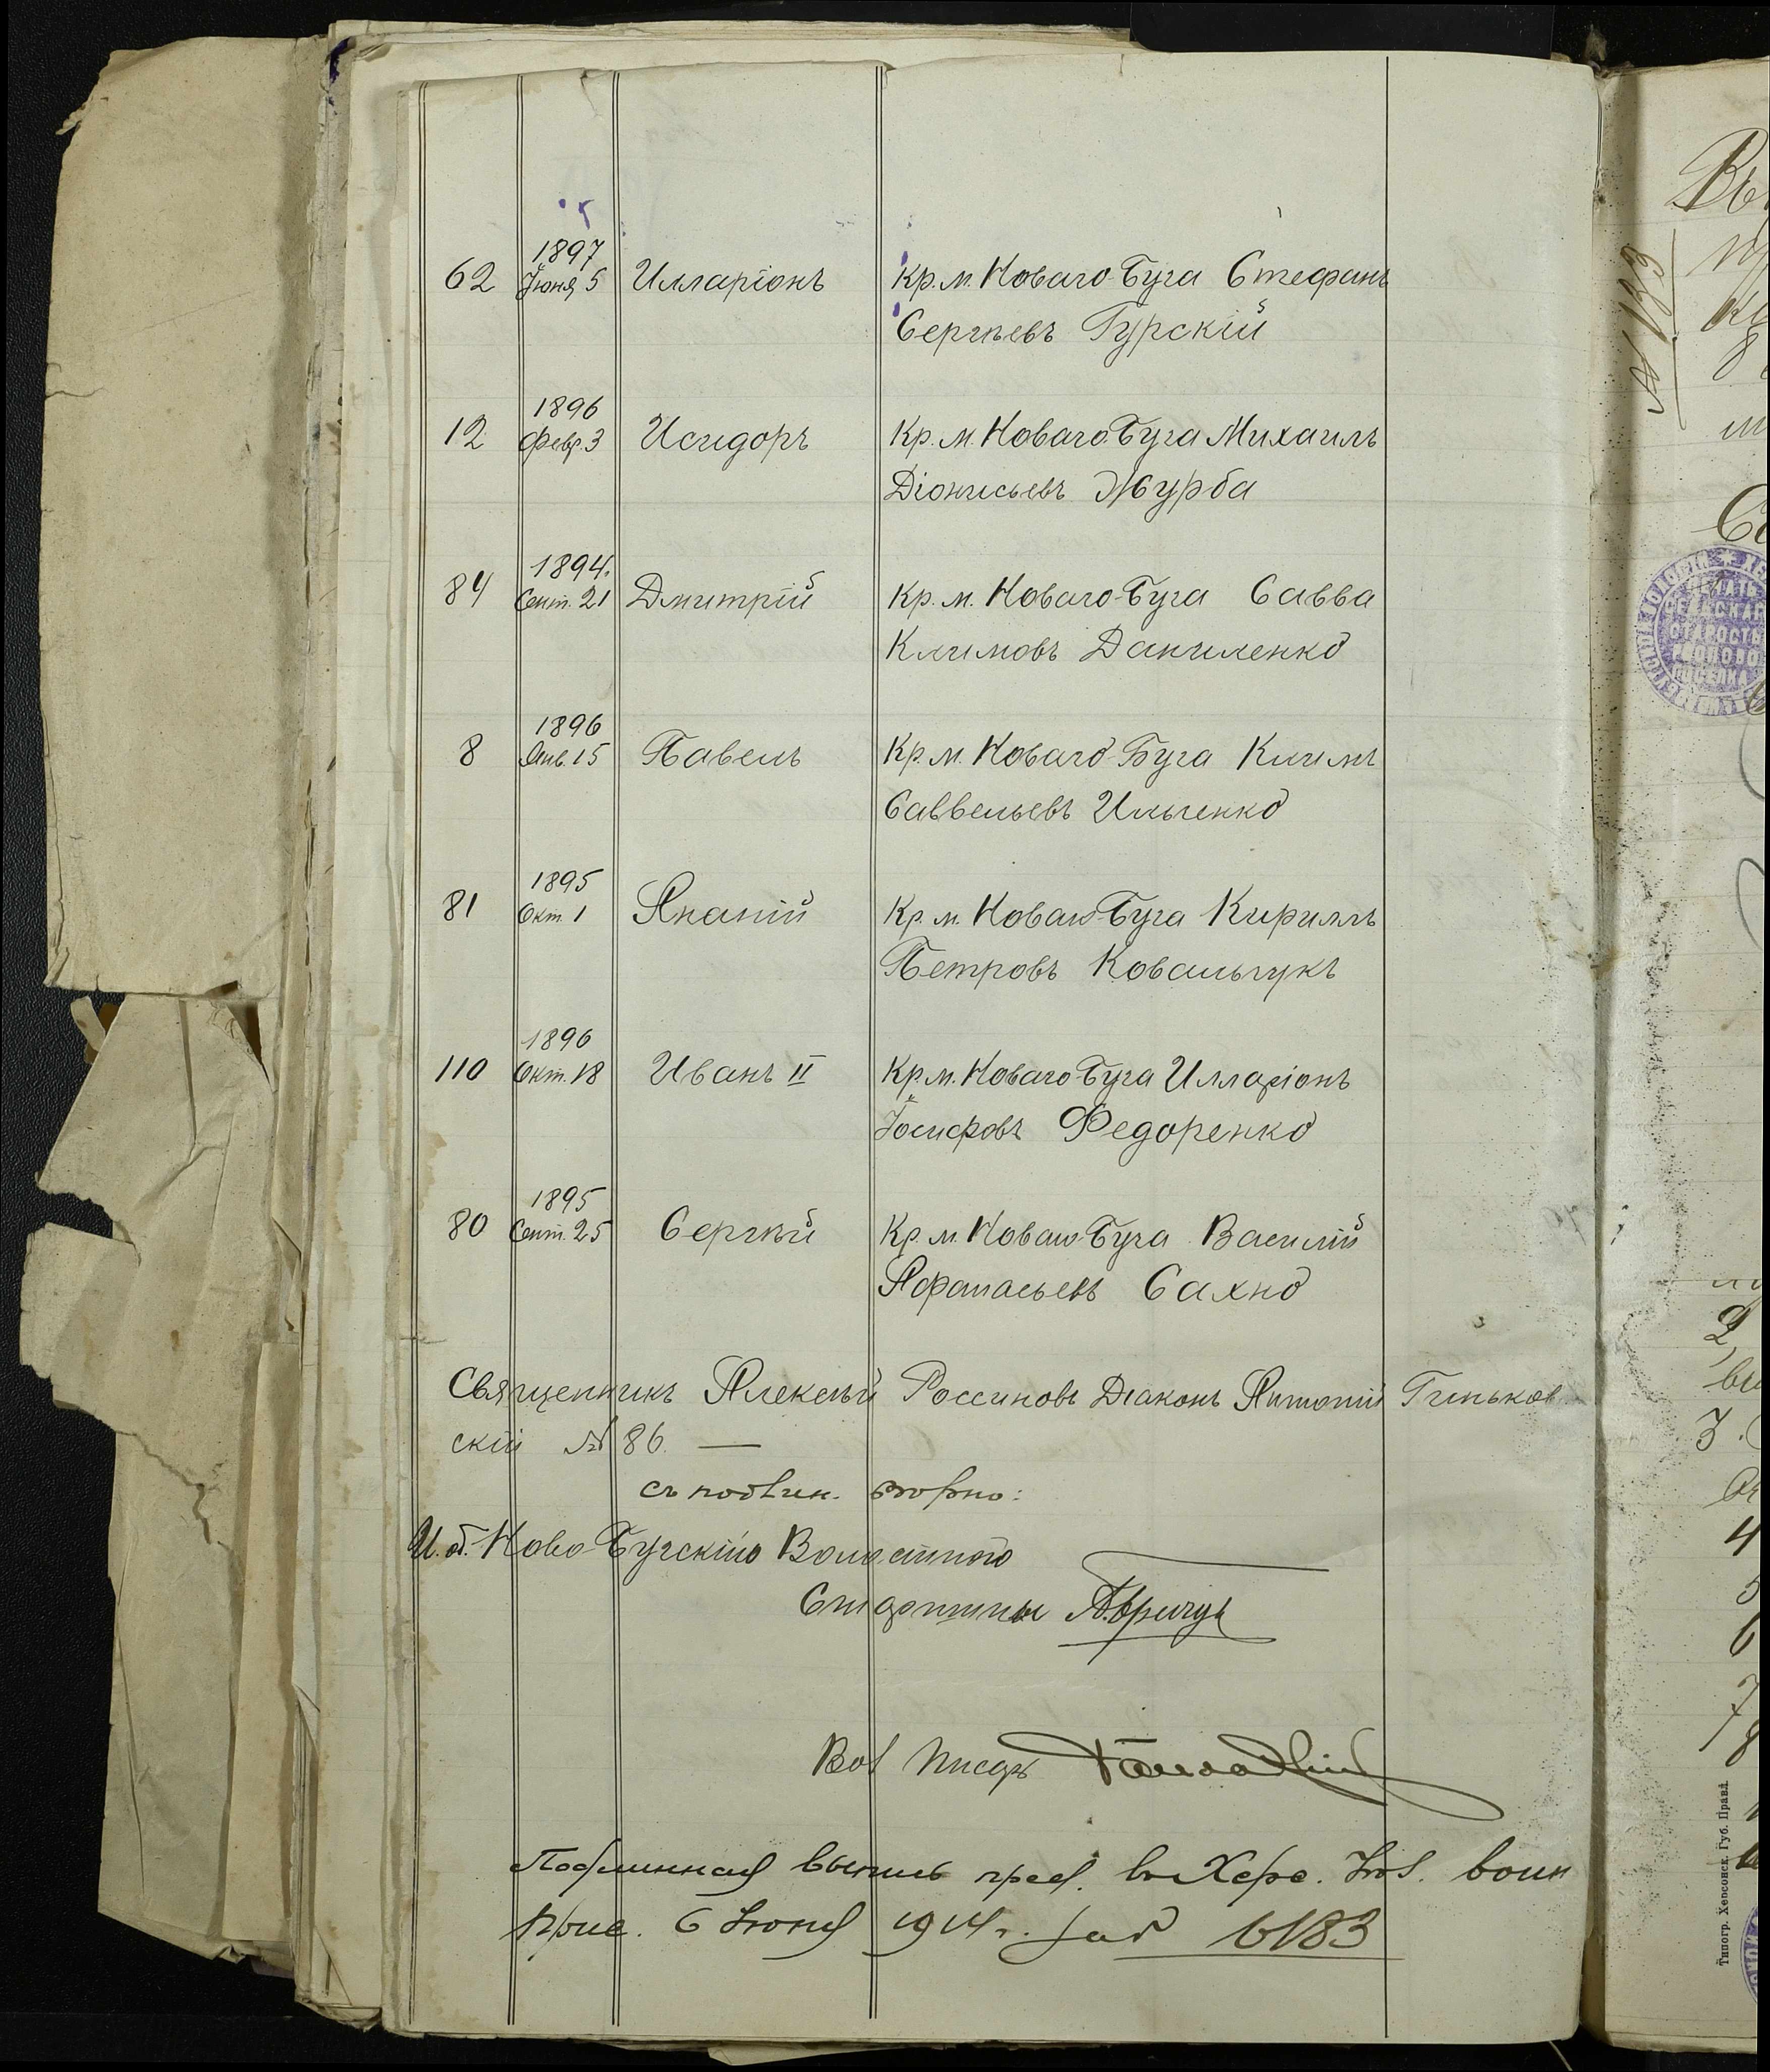 1897
62 Іюня 5 Илларіонъ Кр. м. Новаго-Буга Стефанъ
Сергѣевъ Гурскій
1896
12 Февр. 3 Исидоръ Кр. м. Новаго-Буга Михаилъ
Діонисьевъ Журба
1894.
84 Сент. 21 Дмитрій Кр. м. Новаго-Буга Савва
Климовъ Даниленко
1896
8 Янв. 15 Павелъ Кр. м. Новаго-Буга Климъ
Саввельевъ Ильченко
1895
81 Окт. 1 Ананій Кр. м. Новаго-Буга Кириллъ
Петровъ Ковальчукъ
1896
110 Окт. 18 Иванъ II Кр. м. Новаго-Буга Илларіонъ
Іосифовъ Федоренко
1895
80 Сент. 25 Сергѣй Кр. м. Новаго-Буга Василій
Афанасьевъ Сахно
Священникъ Алексѣй Россиновъ Діаконъ Антоній Гиньков
скій № 86. —
съ подлин. вѣрно:
И. об. Ново-Бугскаго Волостного
Старшины
Вол Писарь
Подлинная выпись пред. въ Херс. воин
прис. 6 Іюня 1914 г. за № 6183
№ 133
СТАРОСТ
ПОСЕЛКА
2,
3.
4
5
6
7
8
Типогр. Херсонск. Губ. Правл.